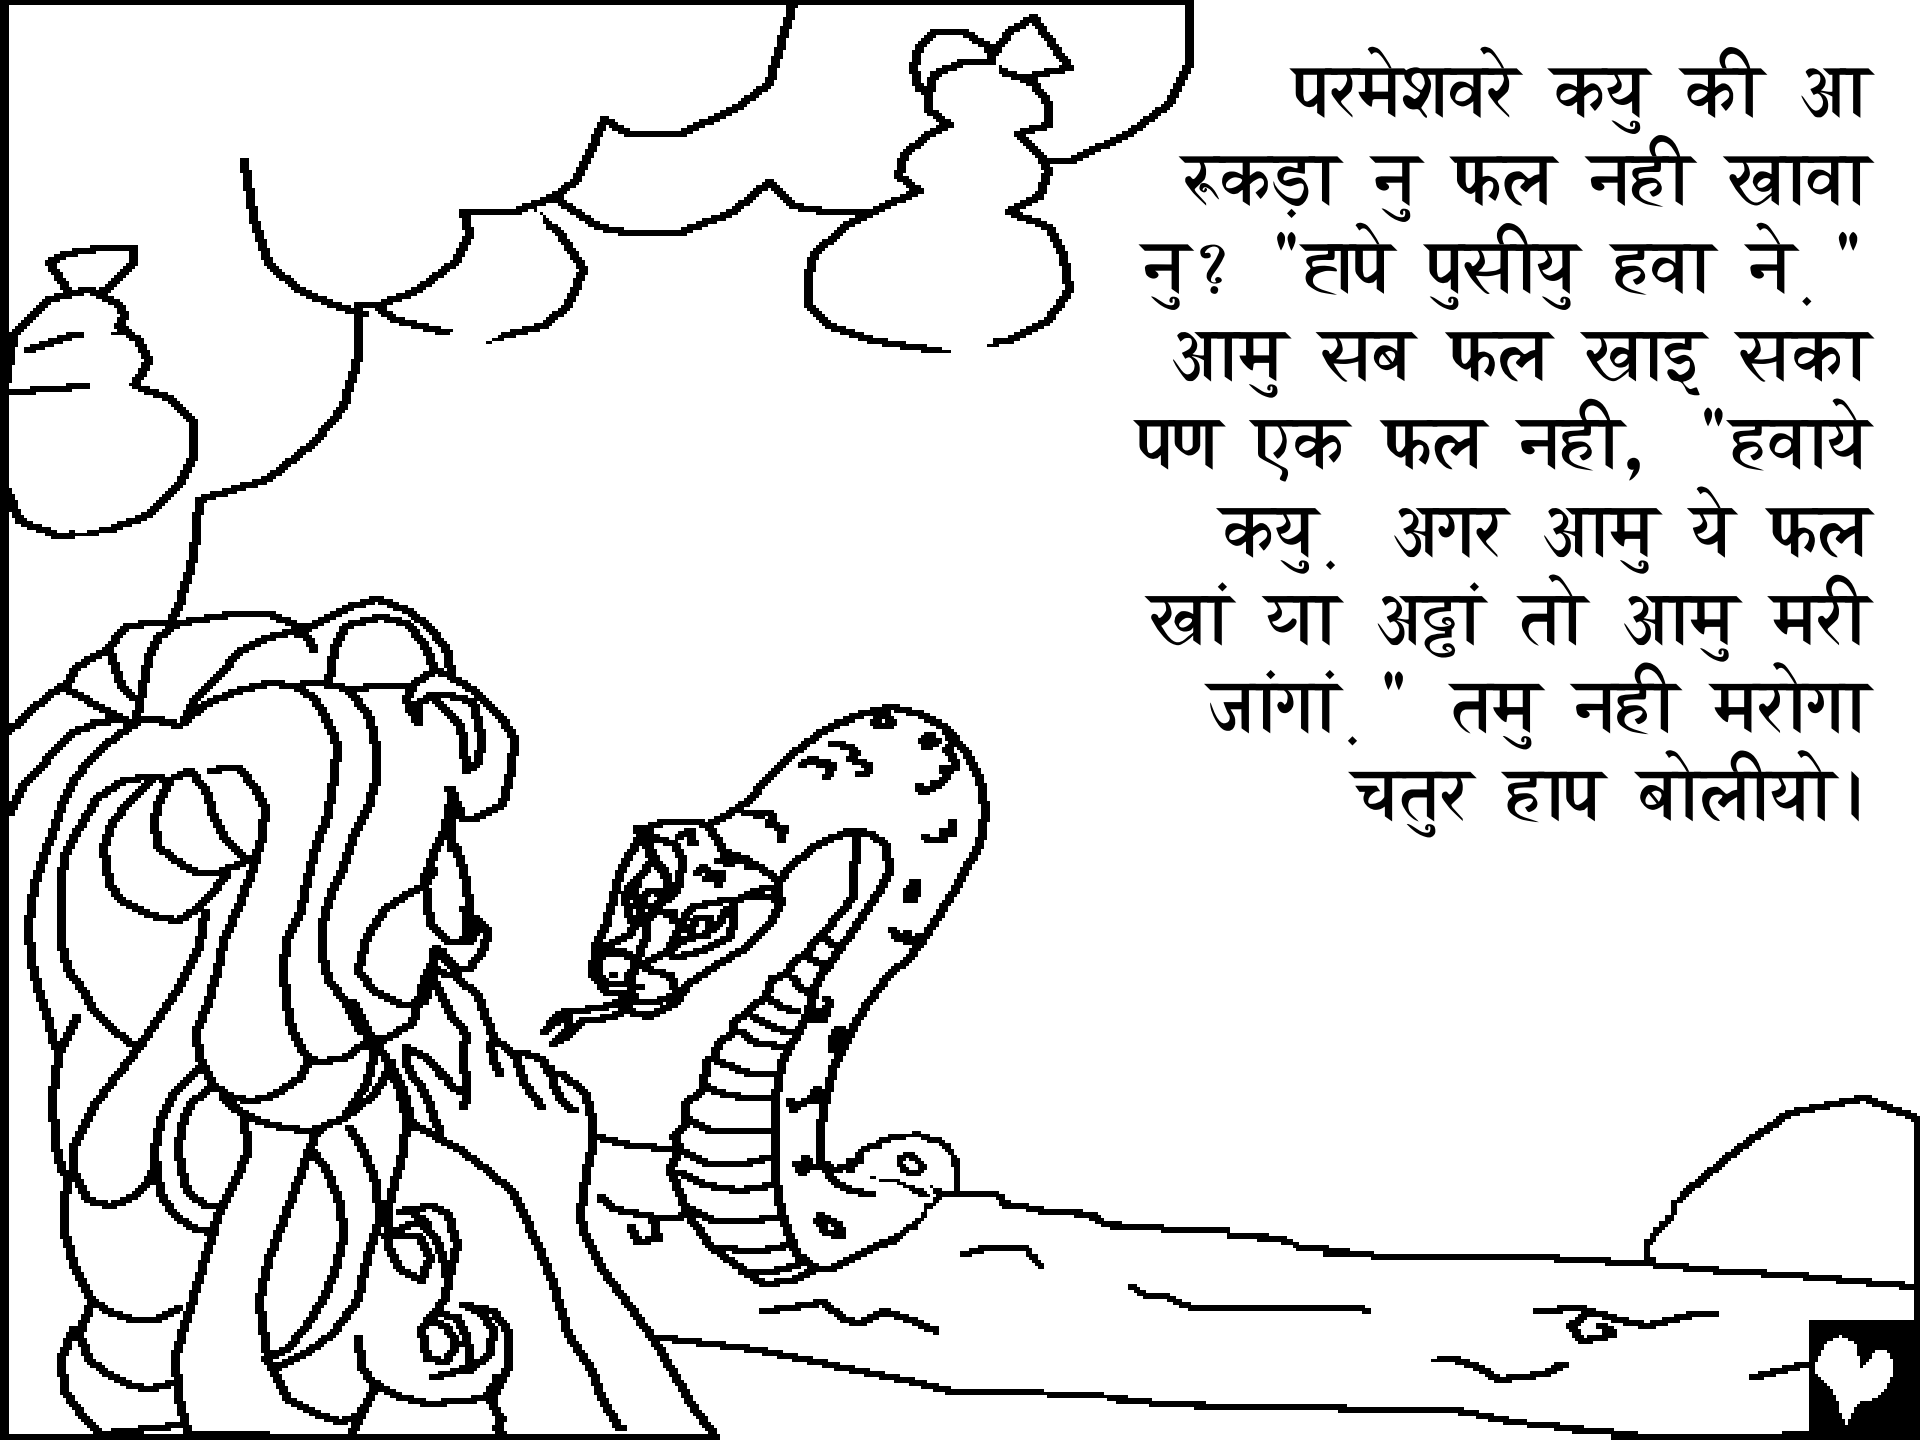 परमेशवरे कयु की आ
रूकड़ा नु फल नही खावा
नु? "हापे पुसीयु हवा ने. "
आमु सब फल खाइ सका
पण एक फल नही, "हवाये
कयु. अगर आमु ये फल
खां या अढ्ढां तो आमु मरी
जांगां. " तमु नही मरोगा
चतुर हाप बोलीयो।